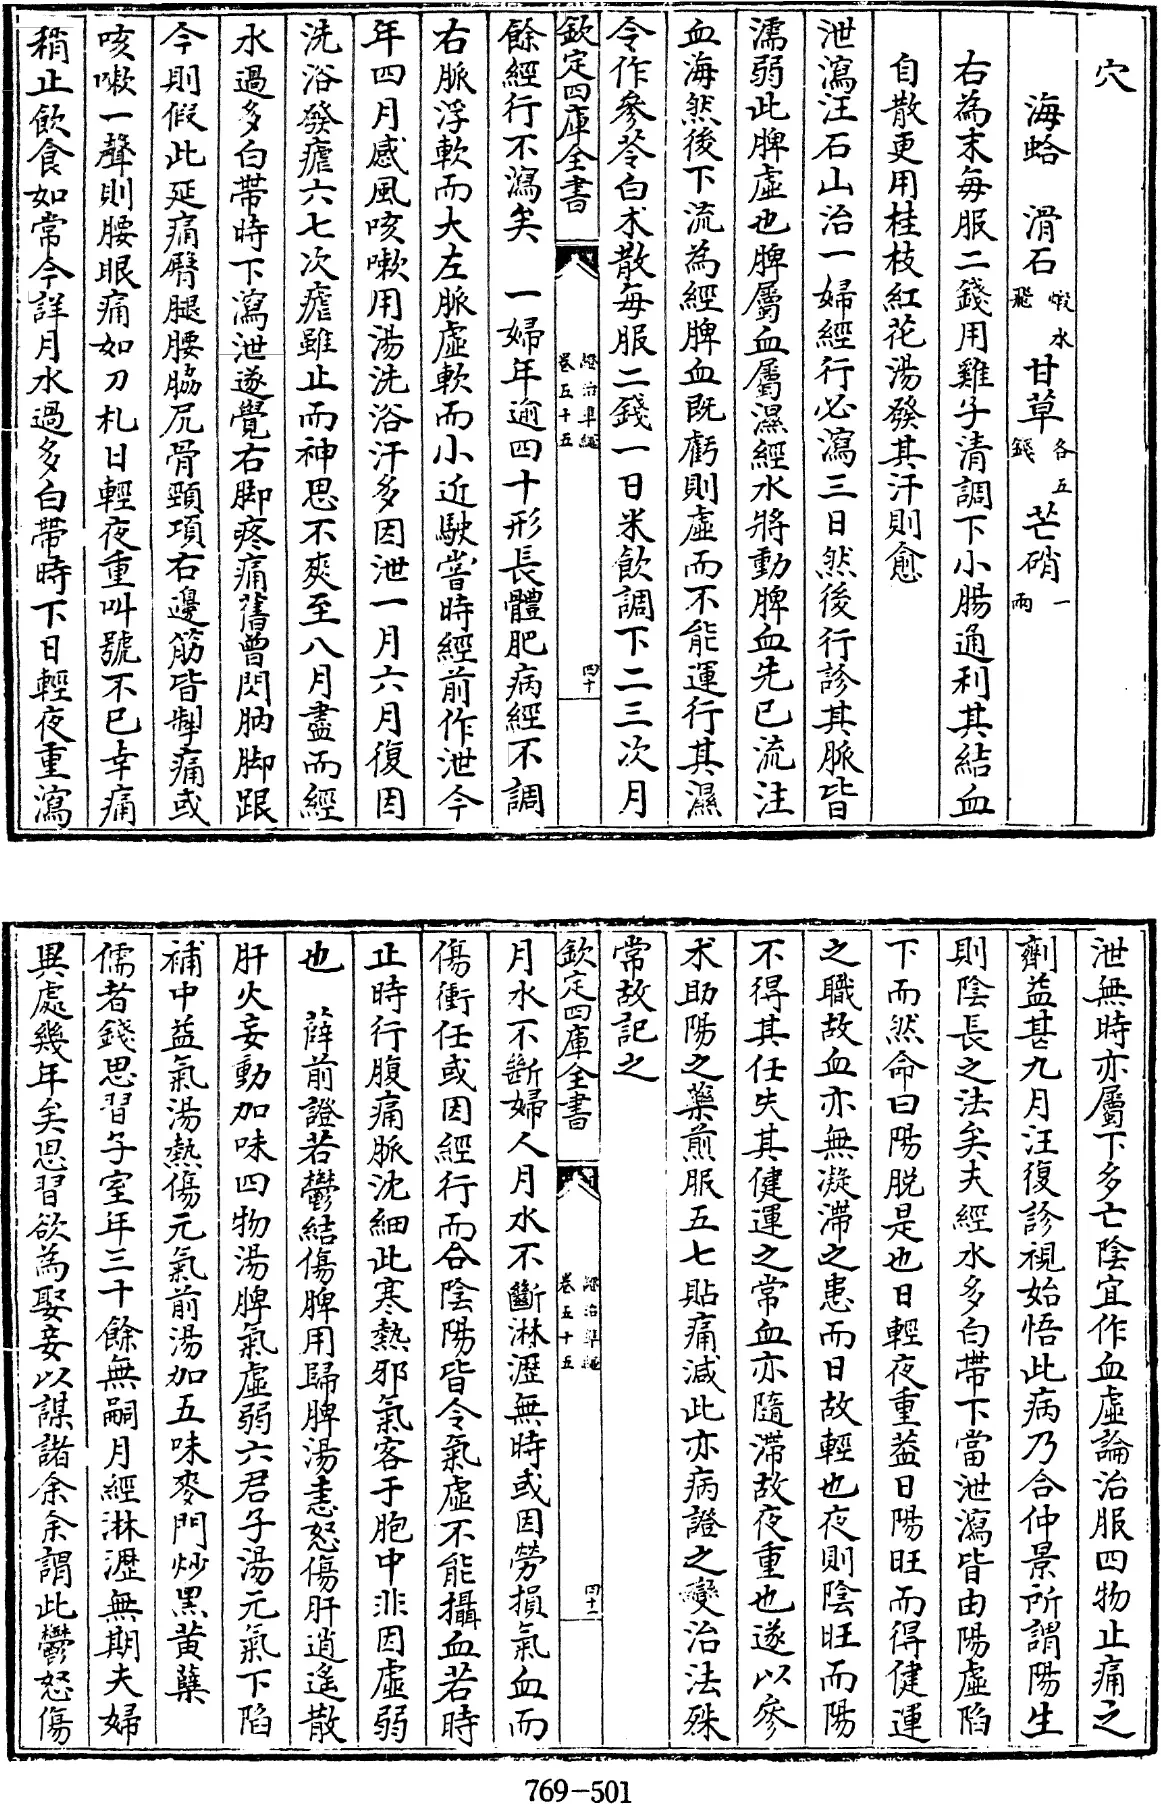 穴
海蛤 滑石煅水飛 甘草各五錢 芒硝一兩
右為末每服二錢用雞子清調下小腸通利其結血
自散更用桂枝紅花湯發其汗則愈
泄瀉汪石山治一婦經行必瀉三日然後行診其脈皆
濡弱此脾虛也脾屬血屬濕經水將動脾血先已流注
血海然後下流為經脾血既虧則虛而不能運行其濕
令作參苓白术散每服二錢一日米飲調下二三次月
欽定四庫全書 證治準繩 卷五十五 四十
餘經行不瀉矣 一婦年逾四十形長體肥病經不調
右脈浮軟而大左脈虛軟而小近駛嘗時經前作泄今
年四月感風咳嗽用湯洗浴汗多因泄一月六月復因
洗浴發瘧六七次瘧雖止而神思不爽至八月盡而經
水過多白帶時下瀉泄遂覺右脚疼痛舊曾閃肭脚跟
今則假此延痛臀腿腰脇尻骨頸項右邊筋皆掣痛或
咳嗽一聲則腰眼痛如刀札日輕夜重叫號不已幸痛
稍止飲食如常今詳月水過多白帶時下日輕夜重瀉
泄無時亦屬下多亡陰宜作血虛論治服四物止痛之
劑益甚九月汪復診視始悟此病乃合仲景所謂陽生
則陰長之法矣夫經水多白帶下當泄瀉皆由陽虛陷
下而然命曰陽脱是也日輕夜重葢日陽旺而得健運
之職故血亦無凝滯之患而日故輕也夜則陰旺而陽
不得其任失其健運之常血亦隨滯故夜重也遂以參
术助陽之藥煎服五七貼痛減此亦病證之變治法殊
常故記之
欽定四庫全書 證治準繩 卷五十五 四十一
月水不斷婦人月水不斷淋瀝無時或因勞損氣血而
傷衝任或因經行而合陰陽皆令氣虛不能攝血若時
止時行腹痛脈沈細此寒熱邪氣客于胞中非因虛弱
也 薛前證若鬱結傷脾用歸脾湯恚怒傷肝逍遙散
肝火妄動加味四物湯脾氣虛弱六君子湯元氣下陷
補中益氣湯熱傷元氣前湯加五味麥門炒黑黄蘗
儒者錢思習子室年三十餘無嗣月經淋瀝無期夫婦
異處幾年矣思習欲為娶妾以謀諸余余謂此鬱怒傷
769-501